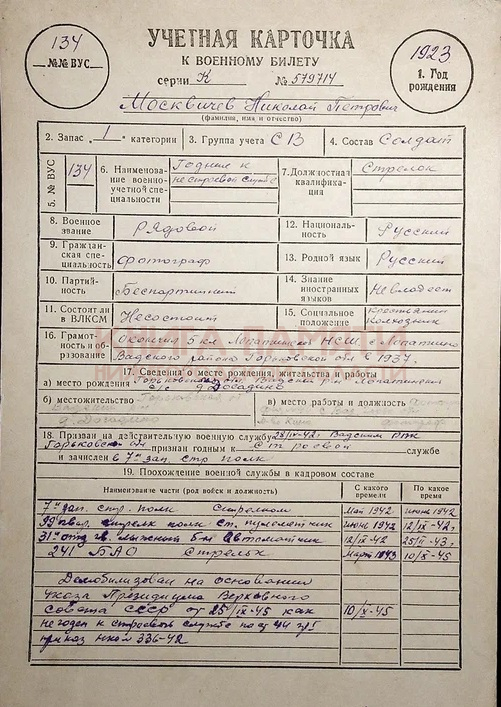 134
№№ ВУС
УЧЕТНАЯ КАРТОЧКА
К ВОЕННОМУ БИЛЕТУ
серии К № 579714
1923
1. Год рождения
Москвичев Николай Петрович
(фамилия, имя и отчество)
2. Запас „1“ категории
3. Группа учета СВ
4. Состав Солдат
5. № ВУС 134
6. Наименование военно-учетной специальности Годные к нестроевой службе
7. Должностная квалификация Стрелок
8. Военное звание Рядовой
12. Национальность Русский
9. Гражданская специальность фотограф
13. Родной язык Русский
10. Партийность Беспартийный
14. Знание иностранных языков Не владеет
11. Состоит ли в ВЛКСМ Не состоит
15. Социальное положение крестьянин колхозник
16. Грамотность и образование окончил 5 кл Лопатинской НСШ Лопатинского
Вадского района Горьковской обл в 1937г.
КНИГА ПАМЯТИ
17. Сведения о месте рождения, жительства и работы
а) место рождения Горьковская Вадский р-н Лопатинский
д. Досадино
б) местожительство Горьковская
в) место работы и должность
д. Досадино
18. Призван на действительную военную службу 28/IV-42г Вадским РВК
Горьковской призван годным к строевой службе
и зачислен в 7й зап. стр полк
19. Прохождение военной службы в кадровом составе
Наименование части (род войск и должность)
С какого времени
По какое время
7й зап. стр. полк Стрелком Май 1942 июнь 1942
99 гвар. стрелк полк ст. пулеметчик июнь 1942 12/IX-42г
31й отд лыжный б-н Автоматчик 12/IX-42 25/II-43г.
241 БАО Стрелок Март 1943 10/X-45
Демобилизован на основании
указа Президиума Верховного
Совета СССР от 25/IX-45 как 10/X-45
не годен к строевой службе по ст 44 гр I
приказ НКО 336-42